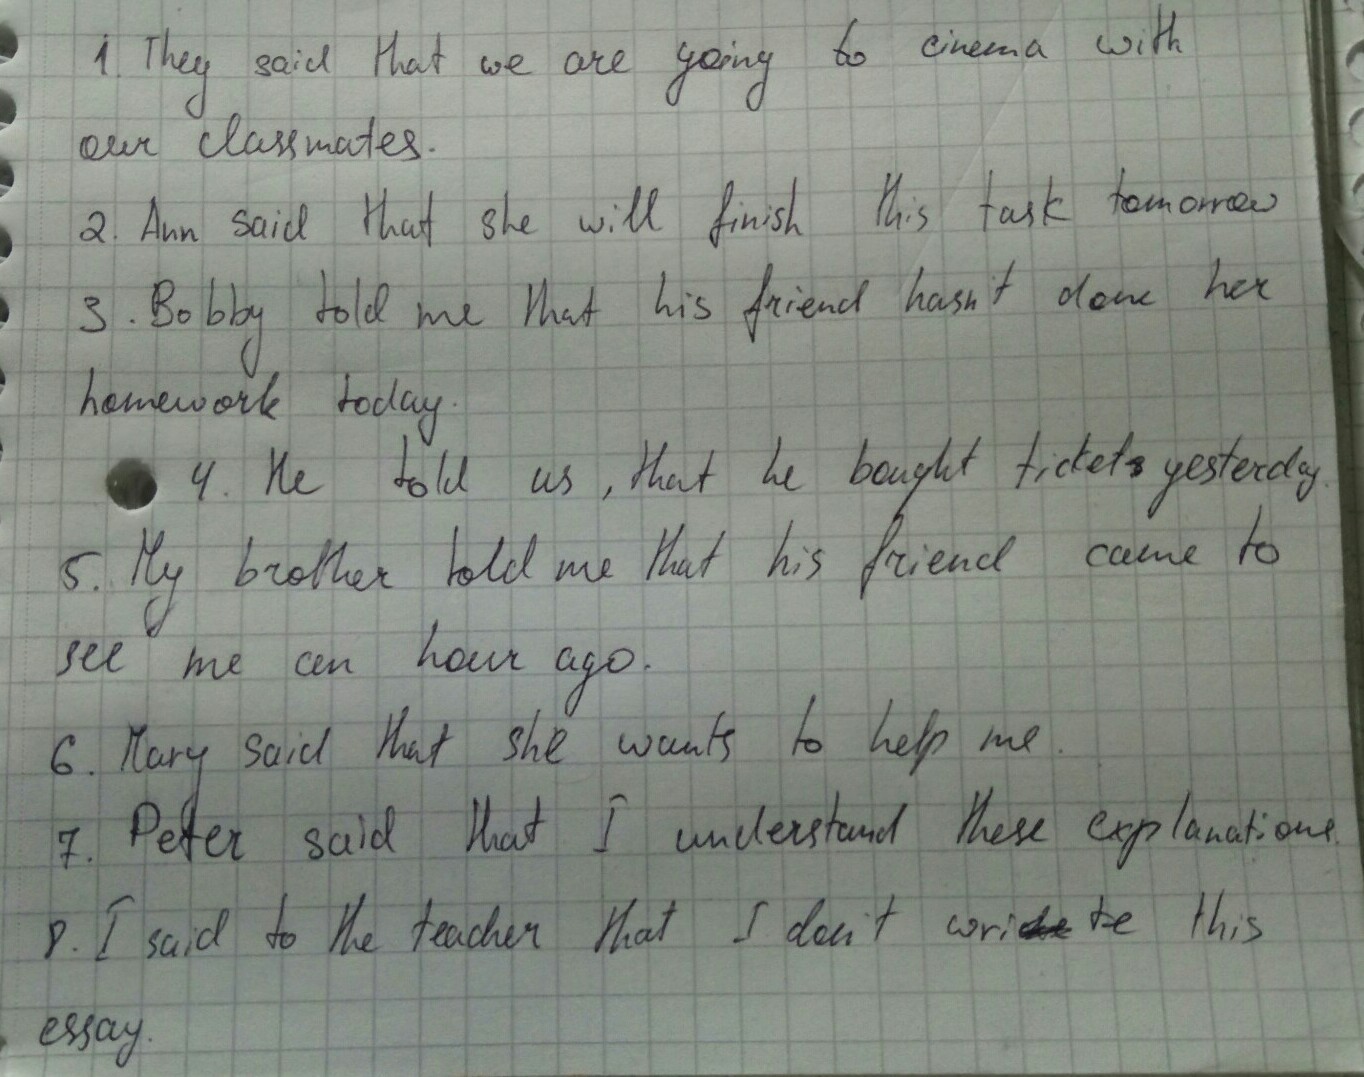 1. They said that we are going to cinema with
our classmates.
2. Ann said that she will finish this task tomorrow
3. Bobby told me that his friend hasn't done her
homework today.
4. He told us, that he bought tickets yesterday.
5. My brother told me that his friend came to
see me an hour ago.
6. Mary said that she wants to help me.
7. Peter said that I understand these explanations.
8. I said to the teacher that I don't write this
essay.